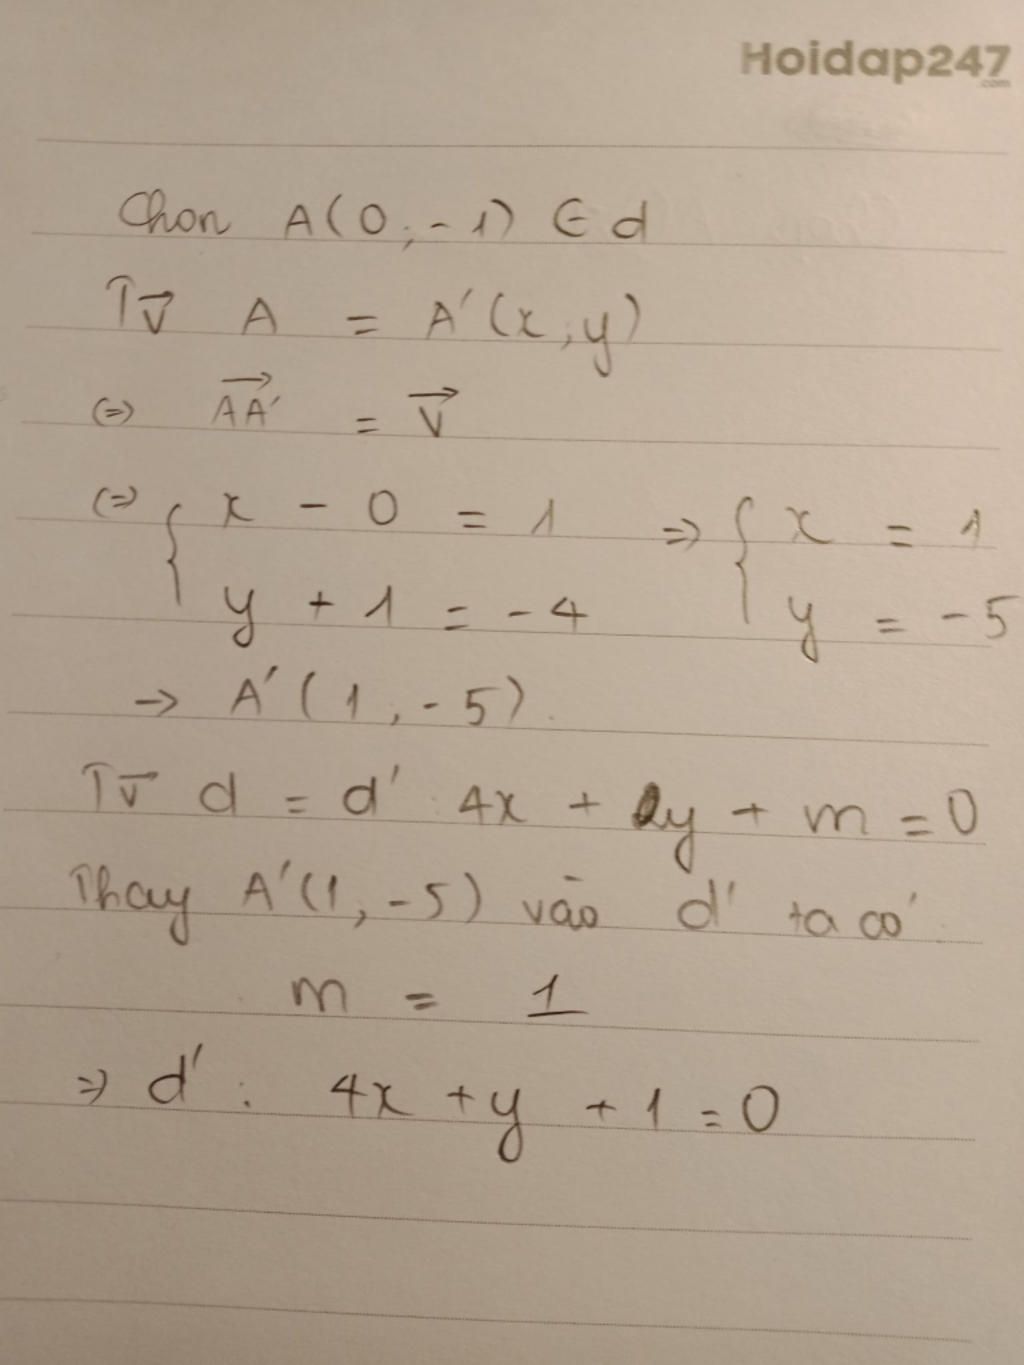 Hoidap247
.com
Chon A(0;-1) ∈ d
Tv⃗ A = A'(x;y)
(=) AA'⃗ = v⃗
(=) { x - 0 = 1 => { x = 1
y + 1 = -4 y = -5
-> A'(1,-5).
Tv⃗ d = d': 4x + y + m = 0
Thay A'(1,-5) vào d' ta có
m = 1
=> d': 4x + y + 1 = 0